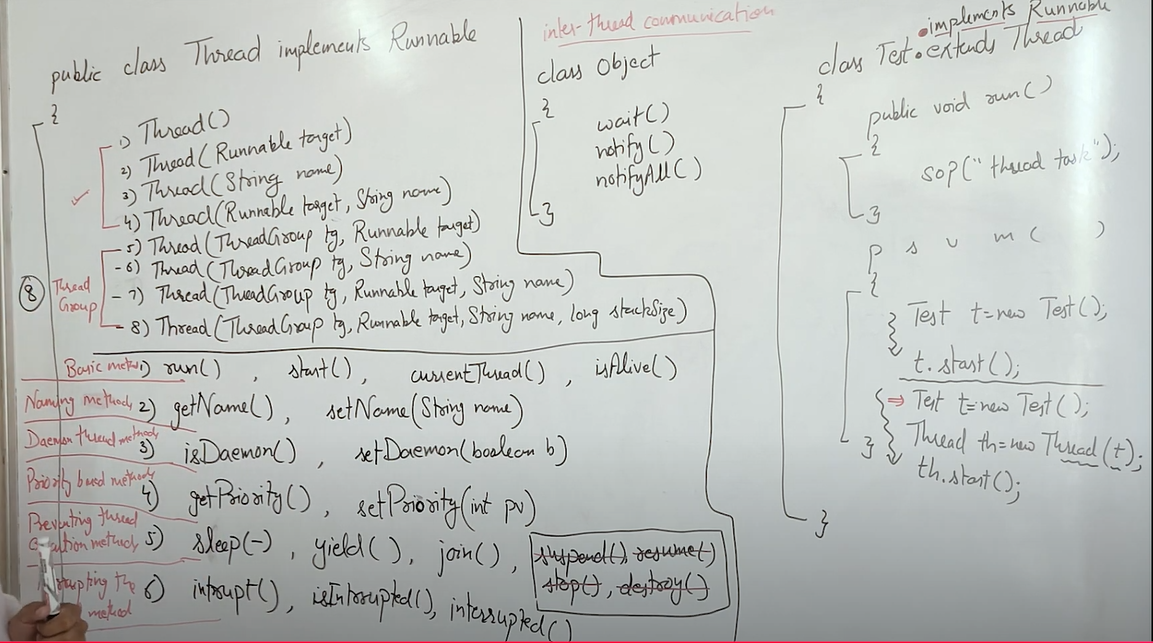 public class Thread implements Runnable
{
1) Thread()
2) Thread(Runnable target)
3) Thread(String name)
4) Thread(Runnable target, String name)
5) Thread(ThreadGroup tg, Runnable target)
-6) Thread(ThreadGroup tg, String name)
-7) Thread(ThreadGroup tg, Runnable target, String name)
-8) Thread(ThreadGroup tg, Runnable target, String name, long stackSize)
8
Thread
Group
Basic 1) run() , start(), currentThread() , isAlive()
Naming methods 2) getName() , setName(String name)
Daemon thread methods 3) isDaemon() , setDaemon(boolean b)
Priority based methods 4) getPriority() , setPriority(int pv)
Preventing thread
methods 5) sleep(-) , yield(), join(), suspend(), resume()
stop(), destroy()
the
method 6) intrupt(), isIntrrupted(), interrupted()
inter-thread communication
class Object
{
wait()
notify()
notifyAll()
}
implements Runnable
class Test extends Thread
{
public void run()
{
sop("thread task");
}
p s v m ( )
{
Test t=new Test();
t.start();
⇒ Test t=new Test();
Thread th=new Thread(t);
th.start();
}
}